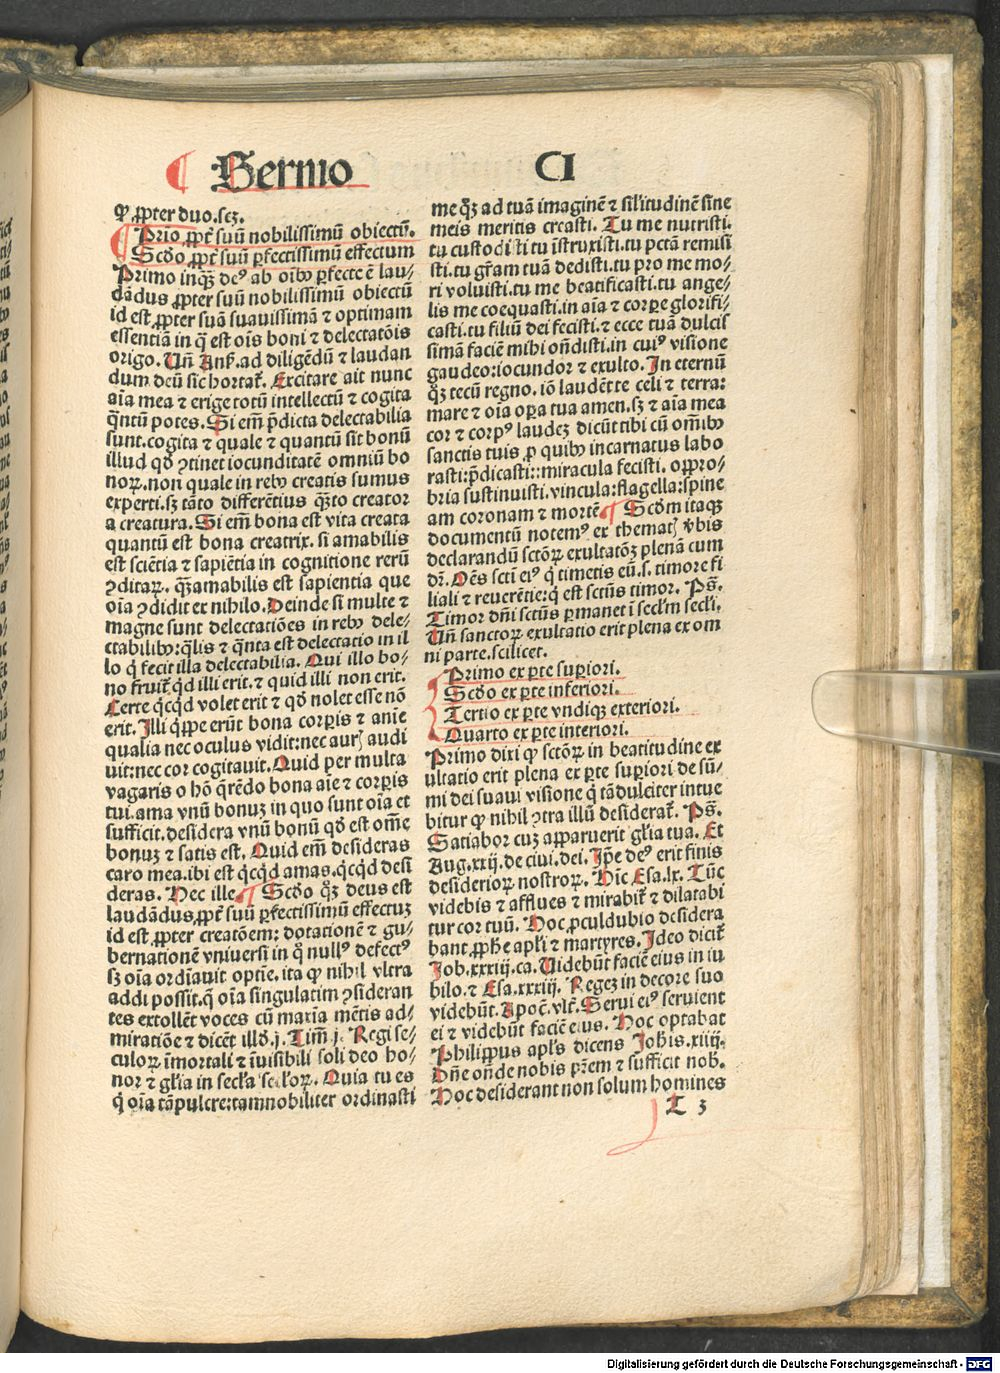 Sermo CI
ꝙ ꝓpter duo.scꝫ.
Prīo ꝓpt̄ suū nobilissimū obiectū.
Scďo ꝓpt̄ suū ꝑfectissimū effectum
Primo inqꝫ deꝰ ab oībꝰ ꝑfecte ē lau-
dādus ꝓpter suū nobilissimū obiectū
id est ꝓpter suā suauissimā ⁊ optimam
essentiā in q̄ est oīs boni ⁊ delectatōis
origo. Un̄ Anß. ad diligēdū ⁊ laudan
dum deū sic hortat᷑. Excitare ait nunc
aīa mea ⁊ erige totū intellectū ⁊ cogita
q̄ntū potes. Si em̄ p̄dicta delectabilia
sunt.cogita ⁊ quale ⁊ quantū sit bonū
illud qď ꝯtinet iocunditatē omniū bo
noꝝ.non quale in rebꝰ creatis sumus
experti.sꝫ tāto differētius q̄ꝫto creator
a creatura. Si em̄ bona est vita creata
quantū est bona creatrix. si amabilis
est sciētia ⁊ sapiētia in cognitione rerū
ꝯditaꝝ. q̄ꝫ amabilis est sapientia que
oīa ꝯdidit ex nihilo. Deinde si multe ⁊
magne sunt delectatiōes in rebꝰ dele-
ctabilibꝰ: q̄lis ⁊ q̄nta est delectatio in il
lo q̄ fecit illa delectabilia. Qui illo bo-
no fruit᷑ qd illi erit. ⁊ quid illi non erit.
Certe qcqd volet erit ⁊ qď nolet esse nō
erit. Illi q̄ppe erūt bona corꝑis ⁊ anīe
qualia nec oculus vidit:nec aurꝭ audi
uit:nec cor cogitauit. Quid per multa
vagaris o hō q̄rēdo bona aīe ⁊ corꝑis
tui.ama vnū bonuꝫ in quo sunt oīa et
sufficit.desidera vnū bonū qď est om̄e
bonuꝫ ⁊ satis est. Quid em̄ desideras
caro mea.ibi est qcqd amas.qcqd desi
deras. Hec ille. ¶ Scďo qꝫ deus est
laudādus ꝓpt̄ suū ꝑfectissimū effectuꝫ
id est ꝓpter creatōem: dotationē ⁊ gu-
bernationē vniuersi in q̊ nullꝰ defectꝰ
sꝫ oīa ordīauit optīe. ita ꝙ nihil vltra
addi possit.q̄ oīa singulatim ꝯsideran
tes extollēt voces cū maxīa mētis ad-
miratiōe ⁊ dicēt illď.j. Tim̄.j. Regi se-
culoꝝ īmortali ⁊ īuisibili soli deo ho-
nor ⁊ gl̄ia in secl̄a secl̄oꝝ. Quia tu es
q̄ oīa tā pulcre:tam nobiliter ordinasti
me qꝫ ad tuā imaginē ⁊ sil̄itudinē sine
meis meritis creasti. Tu me nutristi.
tu custodisti tu īstruxisti.tu pctā remisi
sti.tu gr̄am tuā dedisti.tu pro me mo-
ri voluisti.tu me beatificasti.tu ange-
lis me coequasti.in aīa ⁊ corꝑe glorifi-
casti.tu filiū dei fecisti.⁊ ecce tuā dulcis
simā faciē mihi on̄disti.in cuiꝰ visione
gaudeo:iocundor ⁊ exulto. In eternū
qꝫ tecū regno. iō laudēt te celi ⁊ terra:
mare ⁊ oīa oꝑa tua amen. sꝫ ⁊ aīa mea
cor ⁊ corpꝰ laudeꝫ dicūt tibi cū om̄ibꝰ
sanctis tuis ꝓ quibꝰ incarnatus labo
rasti:p̄dicasti::miracula fecisti. oppro-
bria sustinuisti.vincula:flagella:spine
am coronam ⁊ mortē ¶ Scďm itaqꝫ
documentū notemꝰ ex thematꝭ v̄bis
declarandū sctōꝝ exultatōꝫ plenā cum
dr̄. Om̄s scti eiꝰ q̄ timetis eū.s. timore fi
liali ⁊ reuerētie:q̄ est sctūs timor. Ps̄.
Timor dn̄i sctūs ꝑmanet ī secl̄m secl̄i.
Un̄ sanctoꝝ exultatio erit plena ex om
ni parte.scilicet.
Primo ex ꝑte suꝑiori.
Scďo ex ꝑte inferiori.
Tertio ex ꝑte vndiqꝫ exteriori.
Quarto ex ꝑte interiori.
Primo dixi ꝙ sctōꝝ in beatitudine ex
ultatio erit plena ex ꝑte suꝑiori de sū-
mi dei suaui visione q̄ tā dulciter intue
bitur ꝙ nihil ꝯtra illū desiderat᷑. Ps̄.
Satiabor cuꝫ apparuerit gl̄ia tua. Et
Aug.xxij. de ciui. dei. Ip̄e deꝰ erit finis
desiderioꝝ nostroꝝ. Hic̄ Esa.lx. Tūc
videbis ⁊ afflues ⁊ mirabit᷑ ⁊ dilatabi
tur cor tuū. Hoc ꝓculdubio desidera
bant ꝓph̄e apl̄i ⁊ martyres. Ideo dicit᷑
Job.xxxiij.ca. Uidebūt faciē eius in iu
bilo.⁊ Esa.xxxiij. Regeꝫ in decore suo
videbūt. Apoc̄. vlt̄. Serui eiꝰ seruient
ei ⁊ videbūt faciē eius. Hoc optabat
Philippus apl̄s dicens Joh̄is.xiiij.
Dn̄e on̄de nobis pr̄em ⁊ sufficit nob̄.
Hoc desiderant non solum homines
T 3
Digitalisierung gefördert durch die Deutsche Forschungsgemeinschaft - DFG